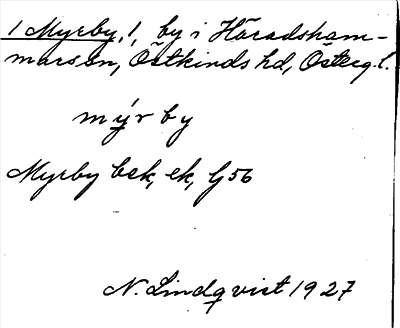 1 Myrby, !, by i Häradsham-
mars sn, Östkinds hd, Österg. l.
my̍r by
Myrby bsk, ek, G 56
N. Lindqvist 1927